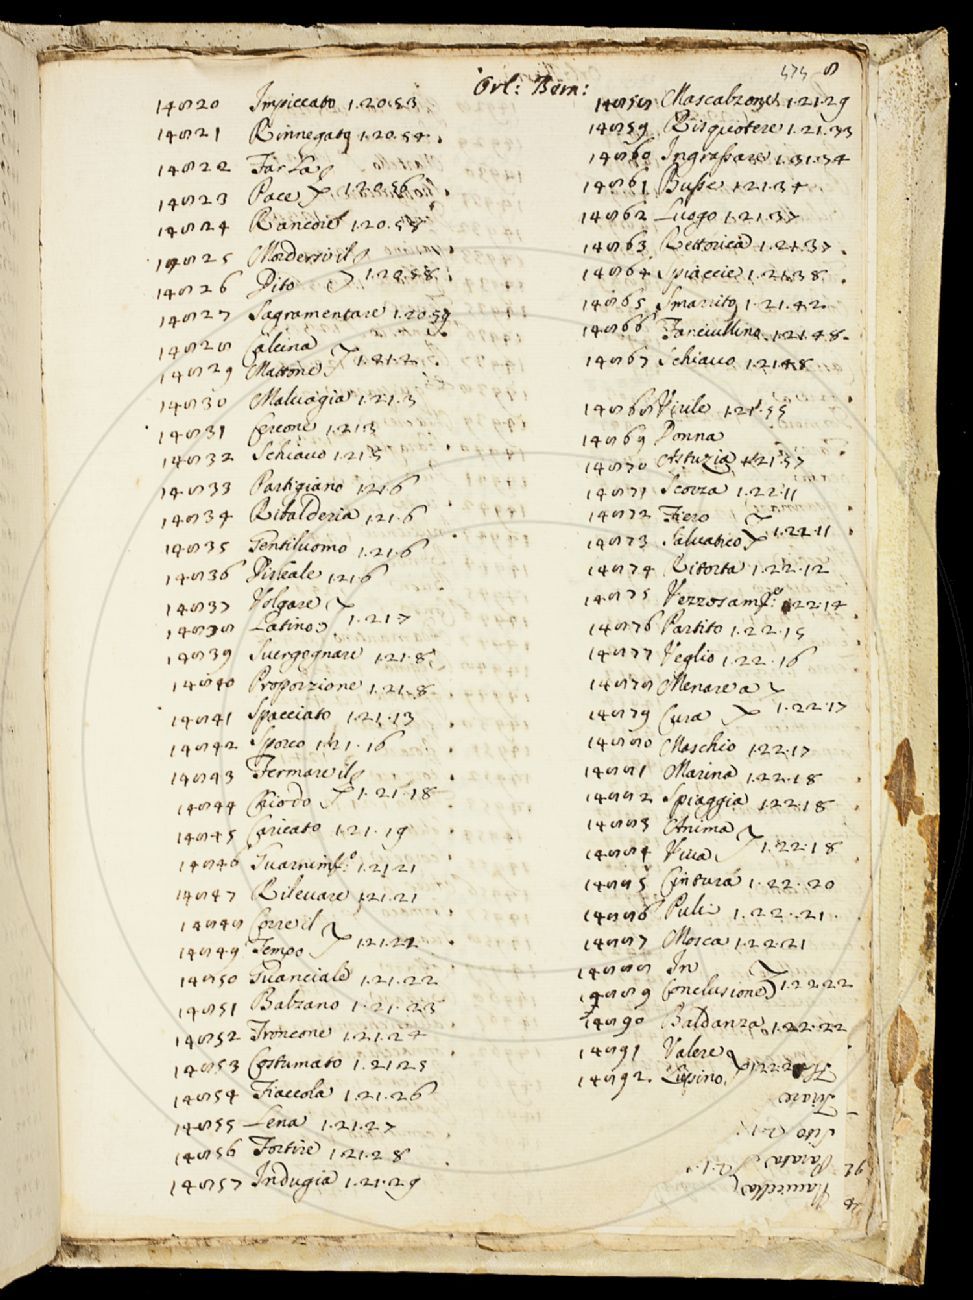 474 8
Orl: Bern:
14820 Impiccato 1.20.53
14821 Rinnegato 1.20.54.
14822 Far La
14823 Pace 1.20.56
14824 1.20.58
14825 Mordersi il
14826 Dito 1.20.58
14827 Sagramentare 1.20.59
14828 Calcina
14829 Mattone 1.21.2
14830 Malvagia 1.21.3
14831 Cercone 1.21.3
14832 Schiavo 1.21.5
14833 Partigiano 1.21.6
14834 Ribalderia 1.21.6
14835 Gentiluomo 1.21.6
14836 Disleale 1.21.6
14837 Volgare
14838 Latino 1.21.7
14839 Svergognare 1.21.8
14840 Proporzione 1.21.8
14841 Spacciato 1.21.13
14842 Sporco 1.21.16
14843 Fermare il
14844 Chiodo 1.21.18
14845 Caricato 1.21.19
14846 1.21.21
14847 Rilevare 1.21.21
14848 Corre il
14849 Tempo 1.21.22
14850 Guanciale 1.21.22
14851 Balzano 1.21.23
14852 Troncone 1.21.24
14853 Costumato 1.21.25
14854 Fiaccola 1.21.26
14855 Lena 1.21.27
14856 Fortire 1.21.28
14857 Indugia 1.21.29
14858 Mascalzone 1.21.29
14859 Risquotere 1.21.33
14860 Ingrassare 1.21.34
14861 Busse 1.21.34
14862 Luogo 1.21.37
14863 Rettorica 1.21.37.
14864 Spiaccie 1.21.38.
14865 Smarrito 1.21.42.
14866 Fanciullino 1.21.48.
14867 Schiavo 1.21.48
14868 Vile 1.21.55
14869 Donna
14870 Astuzia 1.21.57
14871 Scorza 1.22.11
14872 Fiero
14873 Salvatico 1.22.11
14874 Ritorta 1.22.12
14875 1.22.14
14876 Partito 1.22.15
14877 Veglio 1.22.16
14878 Menare a
14879 Cura 1.22.17
14880 Maschio 1.22.17
14881 Marina 1.22.18
14882 Spiaggia 1.22.18
14883 Anima
14884 Viva 1.22.18
14885 Cintura 1.22.20
14886 Puli 1.22.21.
14887 Mosca 1.22.21
14888 In
14889 Conclusione 1.22.22
14890 Baldanza 1.22.22
14891 Valere
14892. Lupino